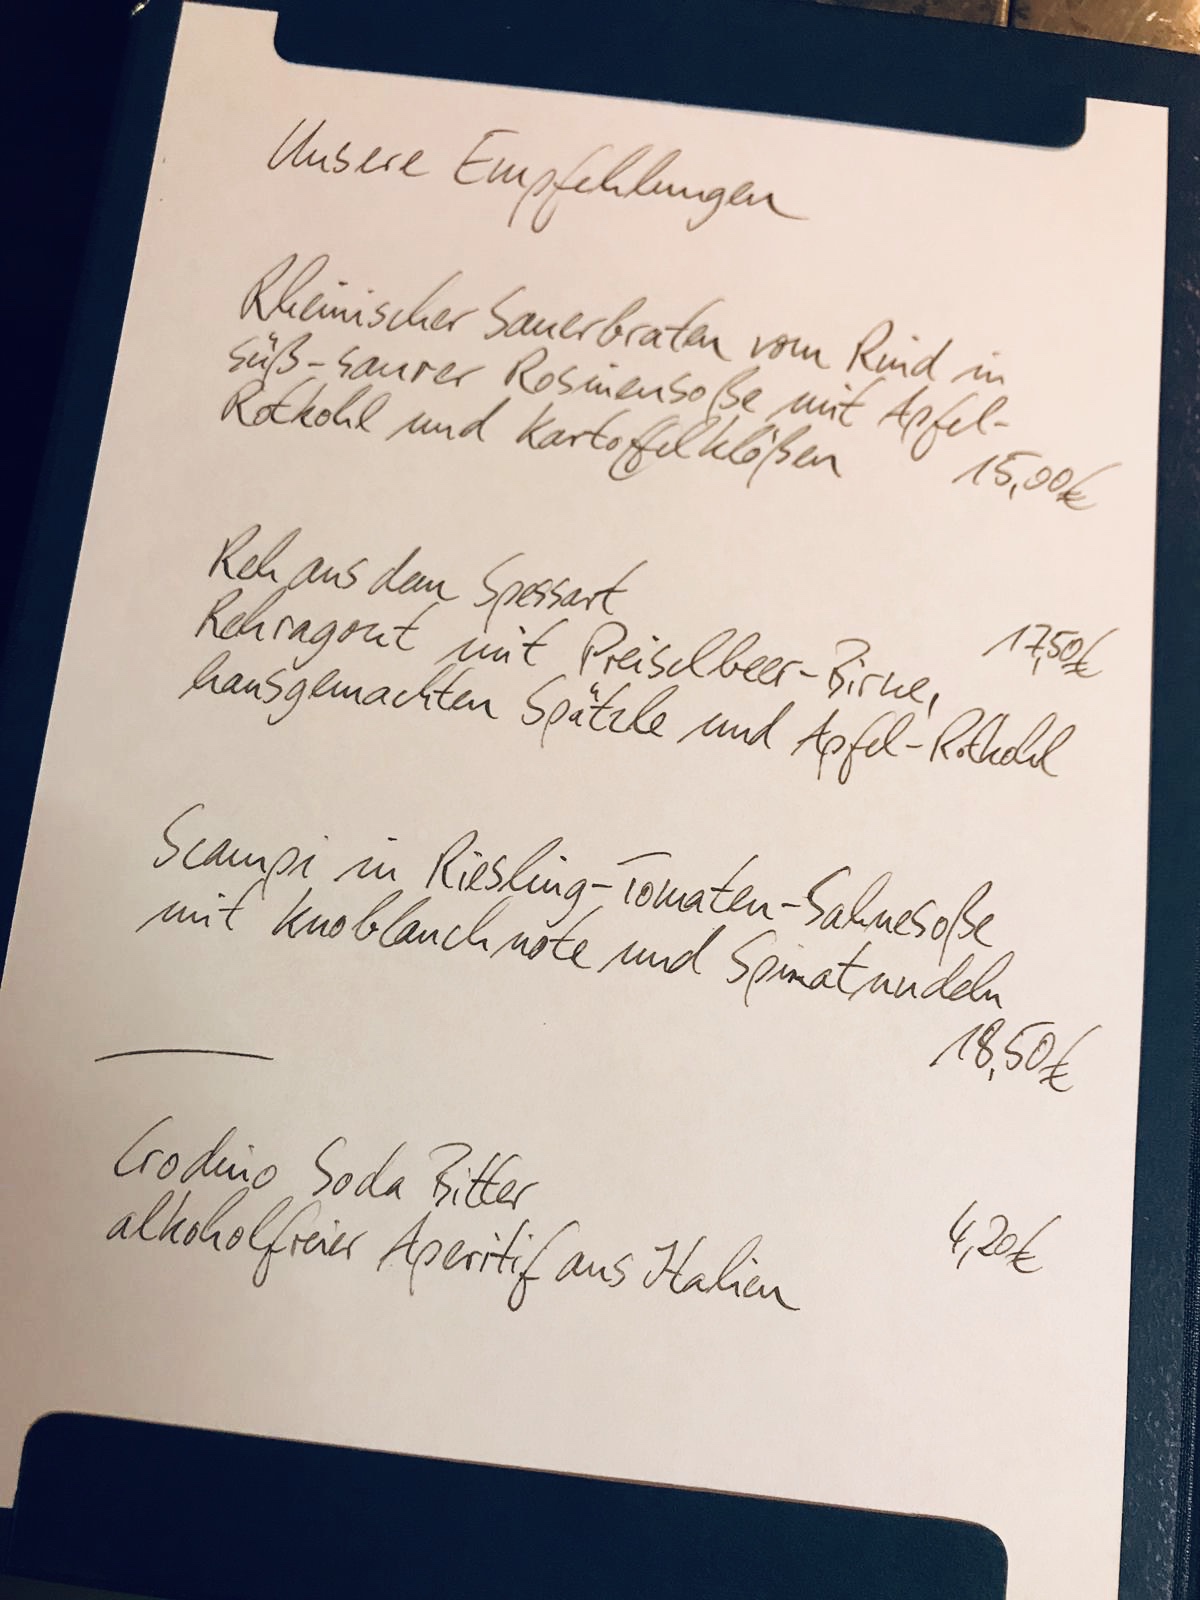 Unsere Empfehlungen
Rheinischer Sauerbraten vom Rind in
süß-saurer Rosinensoße mit Apfel-
Rotkohl und Kartoffelklößen 15,00€
Reh aus dem Spessart
Rehragout mit Preiselbeer-Birne, 17,50€
hausgemachten Spätzle und Apfel-Rotkohl
Scampi in Riesling-Tomaten-Sahnesoße
mit Knoblauchnote und Spinatnudeln
18,50€
Crodino Soda Bitter
alkoholfreier Aperitif aus Italien 4,20€